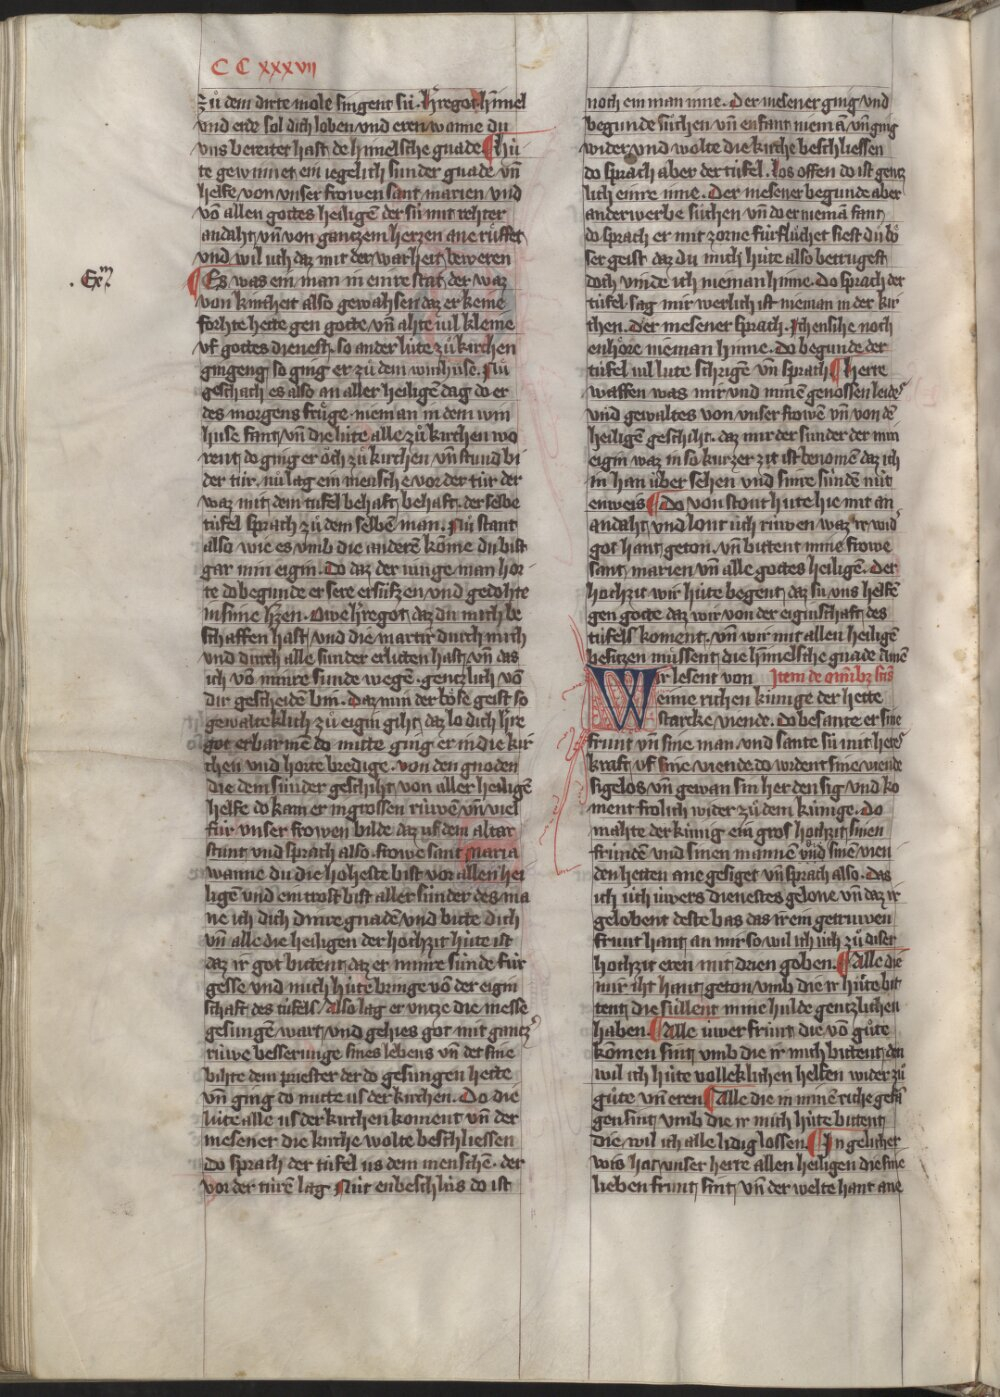 CC xxxvii
zů dem dirte mole singent sú. h̓regot h̄imel
vnd erde sol dich loben vnd eren wanne du
vns bereitet hast de himelsche gnade. ¶ Hú
te gewinnet ein iegelich sunder gnade vn̄
helfe von vnser frowen sant marien vnd
vō allen gottes heiligē der sú mit rehter
andaht vn̄ von gantzem herzen ane rüffet
vnd wil úch daz mit der warheit beweren
. Exm̄.
¶ Es was ein man in einre stat der waz
von kintheit also gewahsen daz er keine
forhte hette gen gotte vn̄ ahte vil kleine
vf gottes dienest. so ander lúte zů kirchen
gingent so ging er zů dem winhuse. Nů
geschach es also an aller heiligē dag do er
des morgens frůge nieman in dem win
huse fant vn̄ die lúte alle zů kirchen wo
rent do ging er öch zů kirchen vn̄ stund bi
der túr. nů lag ein mensche vor der túr der
waz mit dem túfel behaft behaft. der selbe
túfel sprach zů dem selbē man. Nú stant
also wie es vmb die anderē kōme du bist
gar min eigin. Do daz der iunge man hor
te do begunde er sere ersúfzen vnd gedohte
in sime h̓zen. Owe h̓regot daz du mich be
schaffen hast vnd die martir durch mich
vnd durch alle sunder erlitten hast vn̄ das
ich vō minre sunde wegē. gentzlich vō
dir gescheidē bin. Daz min der böse geist so
gewalteklich zů eigin giht daz lo dich h̓re
got erbarmē do mitte ging er in die kir
chen vnd horte bredige. von den gnoden
die dem súnder geschiht von aller heiligē
helfe do kam er in grossen rúwē vn̄ viel
fúr vnser frowen bilde daz vf dem altar
stunt vnd sprach also. frowe sant Maria
wanne du die hoheste bist vor allen hei
ligē vnd ein trost bist aller súnder des ma
ne ich dich dinre gnadē vnd bitte dich
vn̄ alle die heiligen der hochzit húte ist
daz ir got bittent daz er minre súnde fúr
gesse vnd mich húte bringe vō der eigin
schaft des túfels / Also lag er vntze die messe
gesungē wart vnd gehies got mit gantz̓
rúwe besserunge sines lebens vn̄ det sine
bihte dem priester der do gesungen hette
vn̄ ging do mitte us der kirchen. Do die
lúte alle us der kirchen koment vn̄ der
mesener die kirche wolte beschliessen
do sprach der túfel us dem menschē. der
vor der túrē lag Nút enbeschlús do ist
noch ein man inne. Der mesener ging vnd
begunde súchen vn̄ enfant niemā vn̄ ging
wider vnd wolte die kirche beschliessen
do sprach aber der túfel. los offen do ist gentz
lich einre inne. Der mesener begunde aber
anderwerbe súchen vn̄ do er niemā fant
do sprach er mit zorne fúrflúchet siest du bö
ser geist daz du mich húte also betrugest
doch vinde ich nieman hinne. Do sprach der
túfel sag mir werlich ist nieman in der kir
chen. Der mesener sprach. Ich ensihe noch
enhöre niemā hinne. Do begunde der
túfel vil lute schrigē vn̄ sprach ¶ Herre
waffen was mir vnd minē genossen leides
vnd gewaltes von vnser frowē vn̄ von dē
heiligē geschiht. daz mir der sunder der min
eigin waz in so kurzer zit ist benomē daz ich
in han úber sehen vnd sinre súndē nút
enweis ¶ Do von stont húte hie mit an
andaht vnd lont úch rúwen waz ir wid̓
got hant geton. vn̄ bittent mine frowe
sant marien vn̄ alle gottes heiligē. Der
hochzit wir húte begent daz sú vns helfē
gen gotte daz wir von der eiginschaft des
túfels koment. vn̄ wir mit allen heiligē
besitzen mússent die h̄imelsche gnade Amē
Wir lesent von Item de omnibz sctis
eime richen kúnige der hette
starcke viende. do besante er sine
frunt vn̄ sine man vnd sante sú mit heres
kraft vf sine viende. do wrdent sine viende
sigelos vn̄ gewan sin her den sig vnd ko
ment frolich wider zů dem kúnige. Do
mahte der kúnig ein gros hochzit sinen
frúnden vnd sinen mannē vnd sinē vien
den hetten ane gesiget vn̄ sprach also. das
ich úch úwers dienestes gelone vn̄ daz ir
gelobent deste bas das ir ein getruwen
frunt hant an mir so wil ich úch zů diser
hochzit eren mit drien goben. ¶ Alle die
mir iht hant geton vmb die ir húte bit
tent die súllent mine hulde gentzlichen
haben. ¶ Alle úwer frúnt die vō gůte
kōmen sint vmb die ir mich bittent den
wil ich húte volleklichen helfen wider zů
gůte vn̄ eren ¶ Alle die in minē riche gefā
gen sint vmb die ir mich húte bittent
die wil ich alle lidig lossen. ¶ In gelicher
wis hat vnser herre allen heiligen die sine
lieben frunt sint vn̄ der welte hant ane